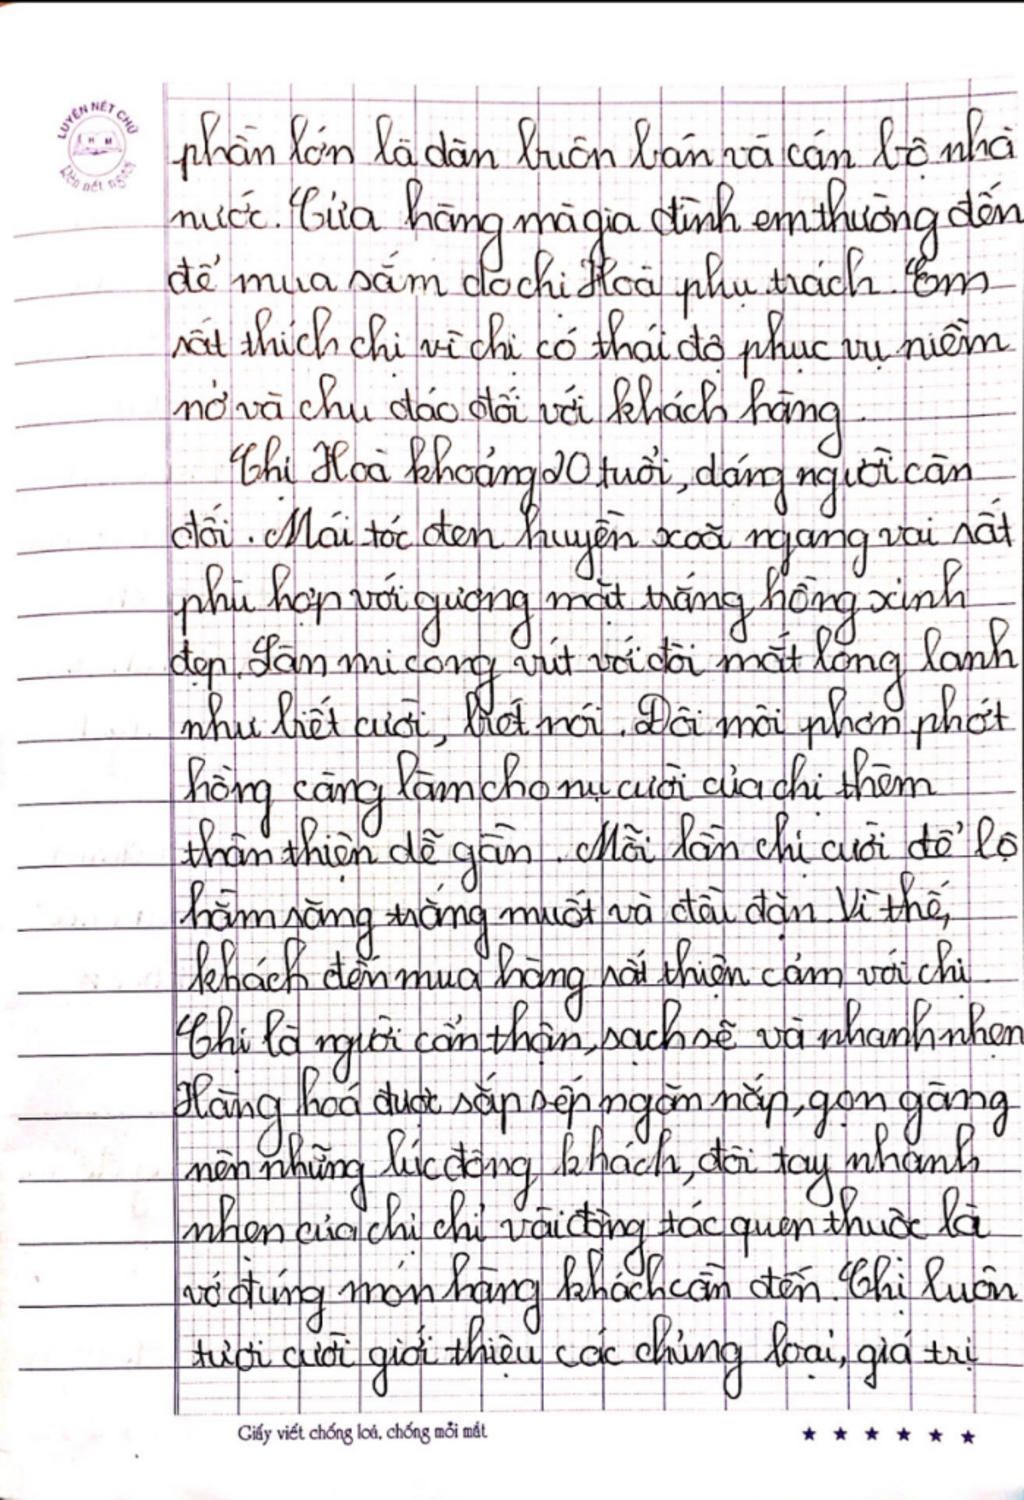 LUYỆN NÉT CHỮ
H M
Rèn nết người
phần lớn là dân buôn bán và cán bộ nhà
nước. Cửa hàng mà gia đình em thường đến
để mua sắm do chị Hoà phụ trách. Em
rất thích chị vì chị có thái độ phục vụ niềm
nở và chu đáo đối với khách hàng.
Chị Hoà khoảng 20 tuổi, dáng người cân
đối. Mái tóc đen huyền xoã ngang vai rất
phù hợp với gương mặt trắng hồng xinh
đẹp. Làn mi cong vút với đôi mắt long lanh
như biết cười, biết nói. Đôi môi phơn phớt
hồng càng làm cho nụ cười của chị thêm
thân thiện dễ gần. Mỗi lần chị cười để lộ
hàm răng trắng muốt và đều đặn. Vì thế,
khách đến mua hàng rất thiện cảm với chị.
Chị là người cẩn thận, sạch sẽ và nhanh nhẹn
Hàng hoá được sắp sếp ngăn nắp, gọn gàng
nên những lúc đông khách, đôi tay nhanh
nhẹn của chị chỉ vài động tác quen thuộc là
vớ đúng món hàng khách cần đến. Chị luôn
tươi cười giới thiệu các chủng loại, giá trị
Giấy viết chống loá, chống mỏi mắt